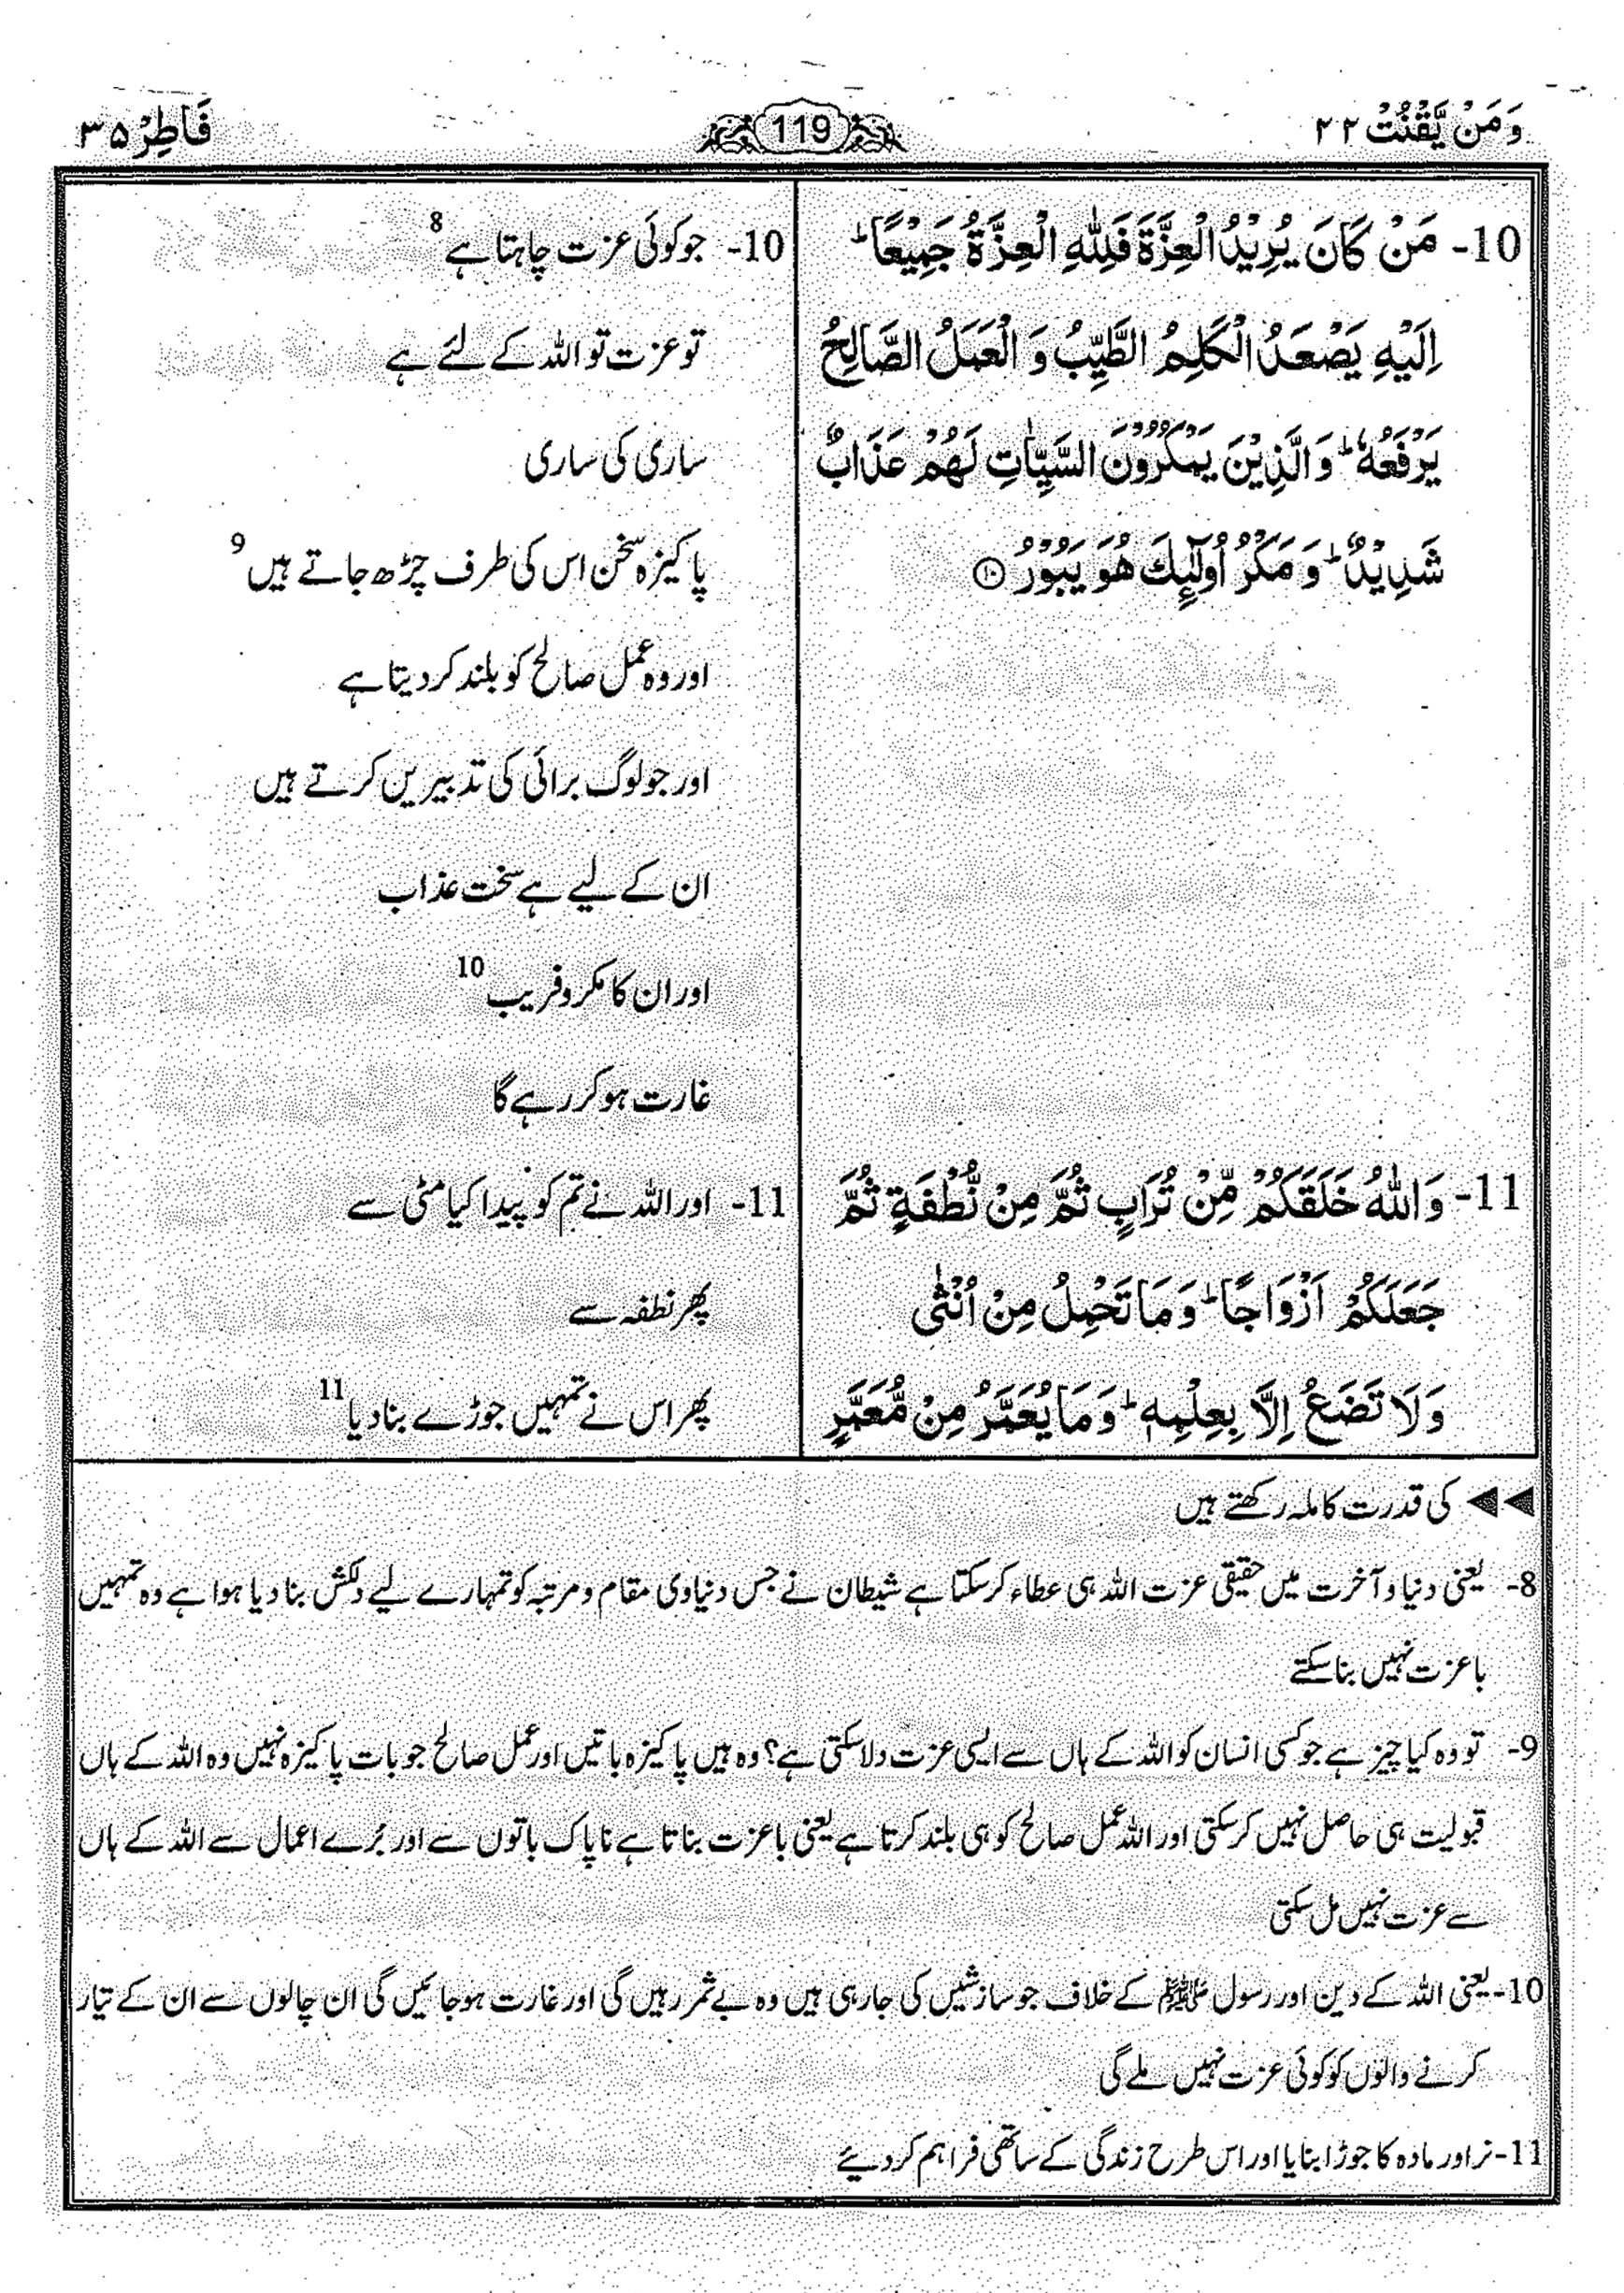 وَمَنْ يَّقْنُتْ ۲۲
119
فَاطِرْ ۳۵
10- مَنْ كَانَ يُرِيْدُ الْعِزَّةَ فَلِلّٰهِ الْعِزَّةُ جَمِيْعًا ؕ
اِلَيْهِ يَصْعَدُ الْكَلِمُ الطَّيِّبُ وَ الْعَمَلُ الصَّالِحُ
يَرْفَعُهٗ ؕ وَ الَّذِيْنَ يَمْكُرُوْنَ السَّيِّاٰتِ لَهُمْ عَذَابٌ
شَدِيْدٌ ؕ وَ مَكْرُ اُولٰٓئِكَ هُوَ يَبُوْرُ ۝۱۰
11- وَاللّٰهُ خَلَقَكُمْ مِّنْ تُرَابٍ ثُمَّ مِنْ نُّطْفَةٍ ثُمَّ
جَعَلَكُمْ اَزْوَاجًا ؕ وَ مَا تَحْمِلُ مِنْ اُنْثٰى
وَلَا تَضَعُ اِلَّا بِعِلْمِهٖ ؕ وَ مَا يُعَمَّرُ مِنْ مُّعَمَّرٍ
10- جو کوئی عزت چاہتا ہے 8
تو عزت تو اللہ کے لئے ہے
ساری کی ساری
پاکیزہ سخن اس کی طرف چڑھ جاتے ہیں 9
اور وہ عمل صالح کو بلند کر دیتا ہے
اور جو لوگ برائی کی تدبیریں کرتے ہیں
ان کے لیے ہے سخت عذاب
اور ان کا مکر و فریب 10
غارت ہو کر رہے گا
11- اور اللہ نے تم کو پیدا کیا مٹی سے
پھر نطفہ سے
پھر اس نے تمہیں جوڑے بنا دیا 11
◄◄ کی قدرت کاملہ رکھتے ہیں
8- یعنی دنیا و آخرت میں حقیقی عزت اللہ ہی عطاء کر سکتا ہے شیطان نے جس دنیاوی مقام و مرتبہ کو تمہارے لیے دلکش بنا دیا ہوا ہے وہ تمہیں
باعزت نہیں بنا سکتے
9- تو وہ کیا چیز ہے جو کسی انسان کو اللہ کے ہاں سے ایسی عزت دلا سکتی ہے؟ وہ ہیں پاکیزہ باتیں اور عمل صالح جو بات پاکیزہ نہیں وہ اللہ کے ہاں
قبولیت ہی حاصل نہیں کر سکتی اور اللہ عمل صالح کو ہی بلند کرتا ہے یعنی باعزت بناتا ہے ناپاک باتوں سے اور بُرے اعمال سے اللہ کے ہاں
سے عزت نہیں مل سکتی
10- یعنی اللہ کے دین اور رسول ﷺ کے خلاف جو سازشیں کی جا رہی ہیں وہ بے ثمر رہیں گی اور غارت ہو جائیں گی ان چالوں سے ان کے تیار
کرنے والوں کو کوئی عزت نہیں ملے گی
11- نر اور مادہ کا جوڑا بنایا اور اس طرح زندگی کے ساتھی فراہم کر دیئے